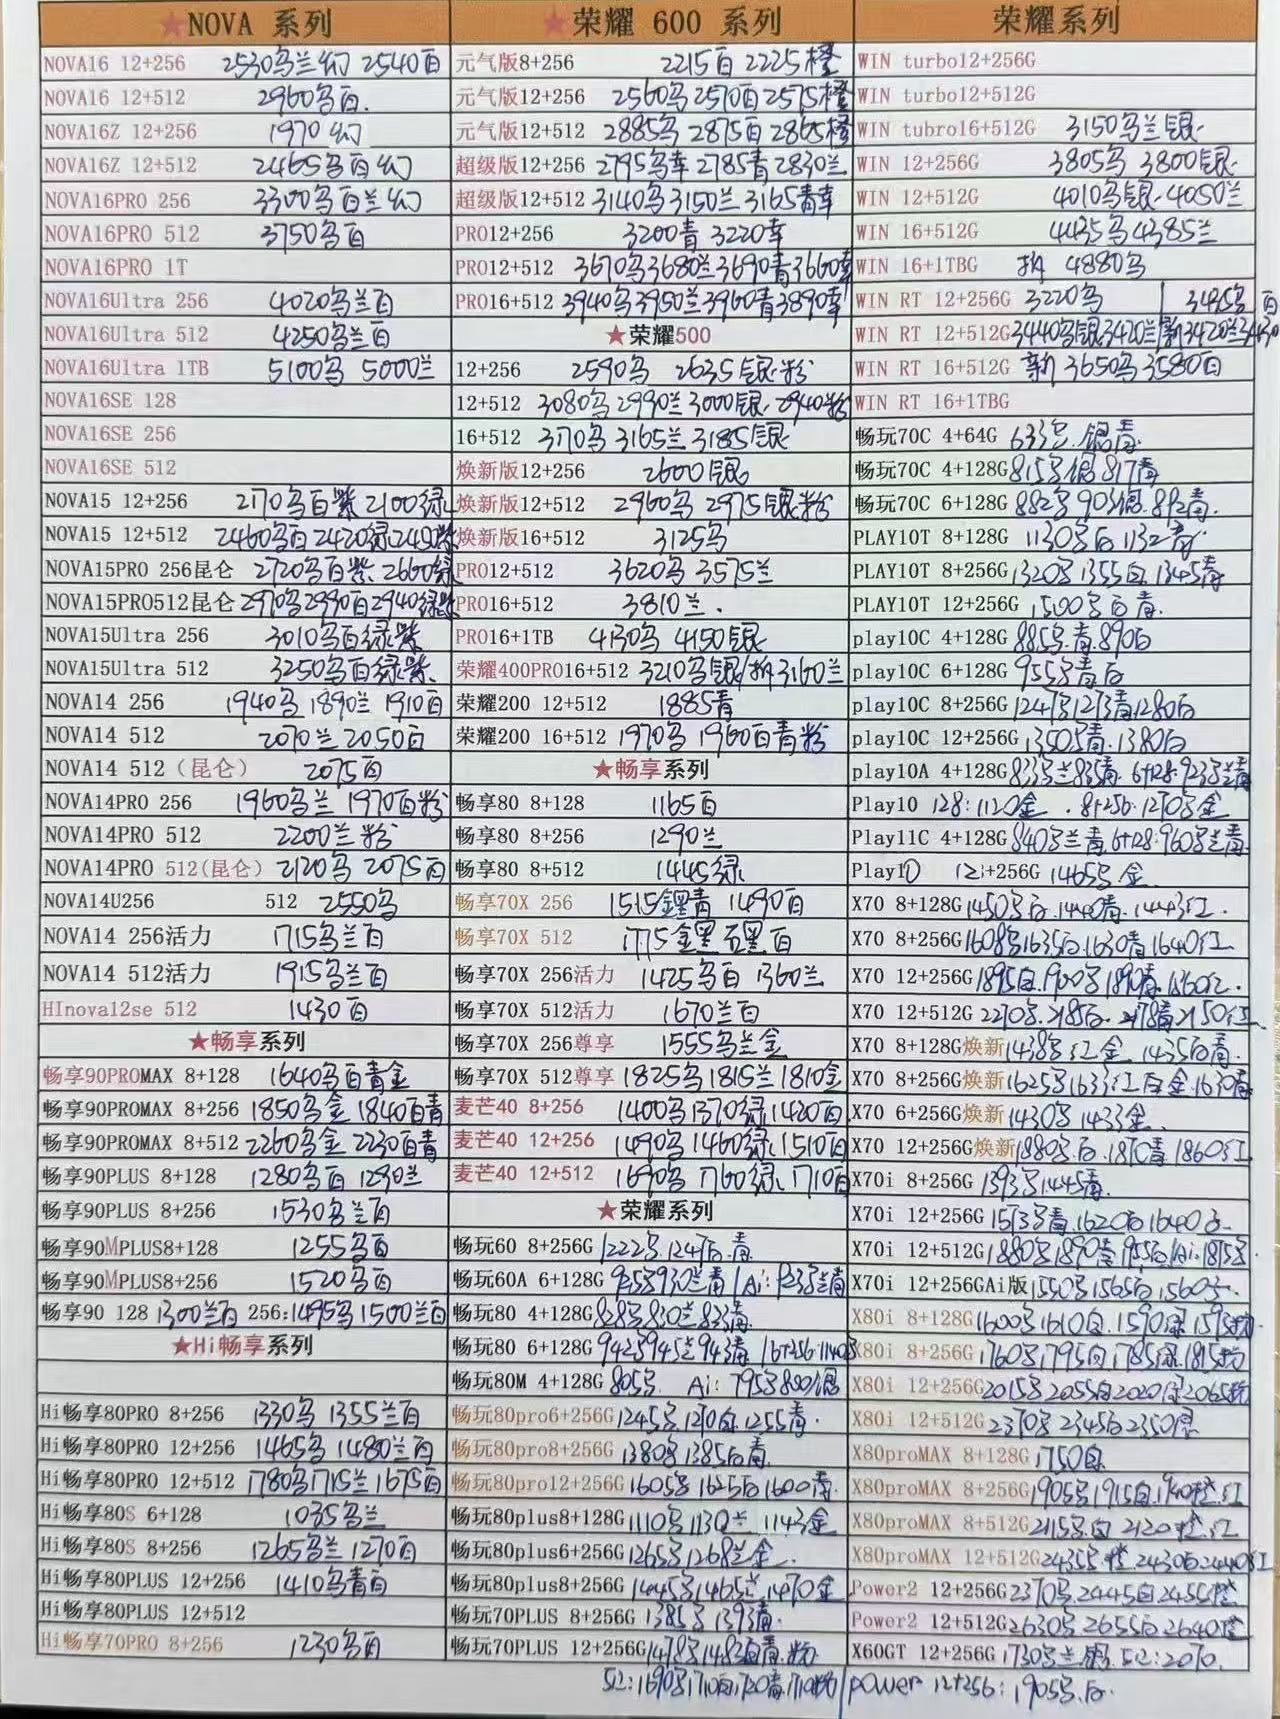 ★NOVA 系列
NOVA16 12+256 2530乌兰幻 2540白
NOVA16 12+512 2960乌白.
NOVA16Z 12+256 1970幻
NOVA16Z 12+512 2465乌白幻
NOVA16PRO 256 3300乌白兰幻
NOVA16PRO 512 3750乌白
NOVA16PRO 1T
NOVA16Ultra 256 4020乌兰白
NOVA16Ultra 512 4250乌兰白
NOVA16Ultra 1TB 5100乌 5000兰
NOVA16SE 128
NOVA16SE 256
NOVA16SE 512
NOVA15 12+256 2170乌白紫 2100绿
NOVA15 12+512 2460乌白 2420绿 2490紫
NOVA15PRO 256昆仑 2720乌白紫. 2660绿
NOVA15PRO512昆仑 2970乌2990白2940绿紫
NOVA15Ultra 256 3010乌白绿紫
NOVA15Ultra 512 3250乌白绿紫.
NOVA14 256 1940乌 1890兰 1910白
NOVA14 512 2070兰 2050白
NOVA14 512(昆仑) 2075白
NOVA14PRO 256 1960乌兰 1970白粉
NOVA14PRO 512 2200兰粉
NOVA14PRO 512(昆仑) 2120乌 2075白
NOVA14U256 512 2550乌
NOVA14 256活力 1715乌兰白
NOVA14 512活力 1915乌兰白
HInova12se 512 1430白
★畅享系列
畅享90PROMAX 8+128 1640乌白青金
畅享90PROMAX 8+256 1850乌金 1840白青
畅享90PROMAX 8+512 2260乌金 2230白青
畅享90PLUS 8+128 1280乌白 1290兰
畅享90PLUS 8+256 1530乌兰白
畅享90MPLUS8+128 1255乌白
畅享90MPLUS8+256 1520乌白
畅享90 128 1300兰白 256:1495乌 1500兰白
★Hi畅享系列
Hi畅享80PRO 8+256 1330乌 1355兰白
Hi畅享80PRO 12+256 1465乌 1480兰白
Hi畅享80PRO 12+512 1780乌1715兰 1675白
Hi畅享80S 6+128 1035乌兰
Hi畅享80S 8+256 1265乌兰 1270白
Hi畅享80PLUS 12+256 1410乌青白
Hi畅享80PLUS 12+512
Hi畅享70PRO 8+256 1230乌白
★荣耀 600 系列
元气版8+256 2215白 2225橙
元气版12+256 2560乌 2570白 2575橙
元气版12+512 2885乌 2875白 2865橙
超级版12+256 2795乌幸 2785青 2830兰
超级版12+512 3140乌3150兰 3165青幸
PRO12+256 3200青 3220幸
PRO12+512 3670乌3680兰3690青3660幸
PRO16+512 3940乌3950兰3960青3890幸
★荣耀500
12+256 2590乌 2635银.粉
12+512 3080乌 2990兰 3000银.2940粉
16+512 3170乌 3165兰 3185银
焕新版12+256 2600银
焕新版12+512 2960乌 2975银粉
焕新版16+512 3125乌
PRO12+512 3620乌 3575兰
PRO16+512 3810兰.
PRO16+1TB 4130乌 4150银
荣耀400PRO16+512 3210乌银/拆3160兰
荣耀200 12+512 1885青
荣耀200 16+512 1970乌 1960白青粉
★畅享系列
畅享80 8+128 1165白
畅享80 8+256 1290兰
畅享80 8+512 1445绿
畅享70X 256 1515金黑青 1490白
畅享70X 512 1775金黑 白
畅享70X 256活力 1425乌白 1360兰
畅享70X 512活力 1670兰白
畅享70X 256尊享 1555乌兰金
畅享70X 512尊享 1825乌1815兰 1810金
麦芒40 8+256 1400乌1370绿1420白
麦芒40 12+256 1490乌1460绿1510白
麦芒40 12+512 1690乌 1760绿.1710白
★荣耀系列
畅玩60 8+256G 1222乌.1247白.青
畅玩60A 6+128G 925乌930兰青/Ai:923乌兰青
畅玩80 4+128G 828乌830兰833青
畅玩80 6+128G 942乌945兰943青 16+256:1140乌
畅玩80M 4+128G 805乌. Ai:795乌800银
畅玩80pro6+256G 1245乌1270白1255青.
畅玩80pro8+256G 1380乌1385白青.
畅玩80pro12+256G 1605乌1625白1600青.
畅玩80plus8+128G 1110乌1130兰 1143金
畅玩80plus6+256G 1265乌1268兰金.
畅玩80plus8+256G 1445乌1465兰.1470金
畅玩70PLUS 8+256G 1385乌1393青.
畅玩70PLUS 12+256G 1478乌1483白青.粉
512:1690乌1710白1720青.1710粉/power 12+256:1905乌.白.
荣耀系列
WIN turbo12+256G
WIN turbo12+512G
WIN tubro16+512G 3150乌兰银.
WIN 12+256G 3805乌 3800银.
WIN 12+512G 4010乌银.4050兰
WIN 16+512G 4435乌4385兰
WIN 16+1TBG 拆 4880乌
WIN RT 12+256G 3220乌 | 3435乌 白
WIN RT 12+512G 3440乌银3420兰/新3420兰3430
WIN RT 16+512G 新 3650乌 3580白
WIN RT 16+1TBG
畅玩70C 4+64G 633乌.银青.
畅玩70C 4+128G 815乌银817青
畅玩70C 6+128G 882乌 903银.892青.
PLAY10T 8+128G 1130乌白 1132青.
PLAY10T 8+256G 1320乌1355白.1345青
PLAY10T 12+256G 1500乌白青.
play10C 4+128G 885乌.青.890白
play10C 6+128G 955乌青白
play10C 8+256G 1247乌1273青1280白
play10C 12+256G 1350乌青.1380白
play10A 4+128G 833乌兰835青.6+128:923乌兰青
Play10 128:1120金 .8+256:1270乌金
Play11C 4+128G 840乌兰青 6+128:960乌兰青.
Play10 12+256G 1465乌金.
X70 8+128G 1450乌白.1440青.1443红.
X70 8+256G 1608乌1635白1630青1640红
X70 12+256G 1895白1900乌1890青1860红.
X70 12+512G 2210乌.2185白.2178青2150红.
X70 8+128G焕新 1438乌红金 1435白青.
X70 8+256G焕新 1625乌1633红白金.1630青
X70 6+256G焕新 1430乌1433金.
X70 12+256G焕新 1880乌.白.1870青 1860红
X70i 8+256G 1393乌1445青.
X70i 12+256G 1573乌青.1620白1640
X70i 12+512G 1880乌1890青1955白/Ai:1875乌.
X70i 12+256GAi版 1550乌1565白1560
X80i 8+128G 1600乌1610白.1590绿1595粉.
X80i 8+256G 1760乌1795白1785绿1815粉
X80i 12+256G 2015乌2055白2020绿2065粉
X80i 12+512G 2370乌2345白2350绿
X80proMAX 8+128G 1750白
X80proMAX 8+256G 1905乌1915白.1940橙.红
X80proMAX 8+512G 2115乌.白 2120橙.红
X80proMAX 12+512G 2435乌.橙.2430白.2440红
Power2 12+256G 2370乌2445白2455橙
Power2 12+512G 2630乌2655白2640橙
X60GT 12+256G 1730乌兰银.512:2070.